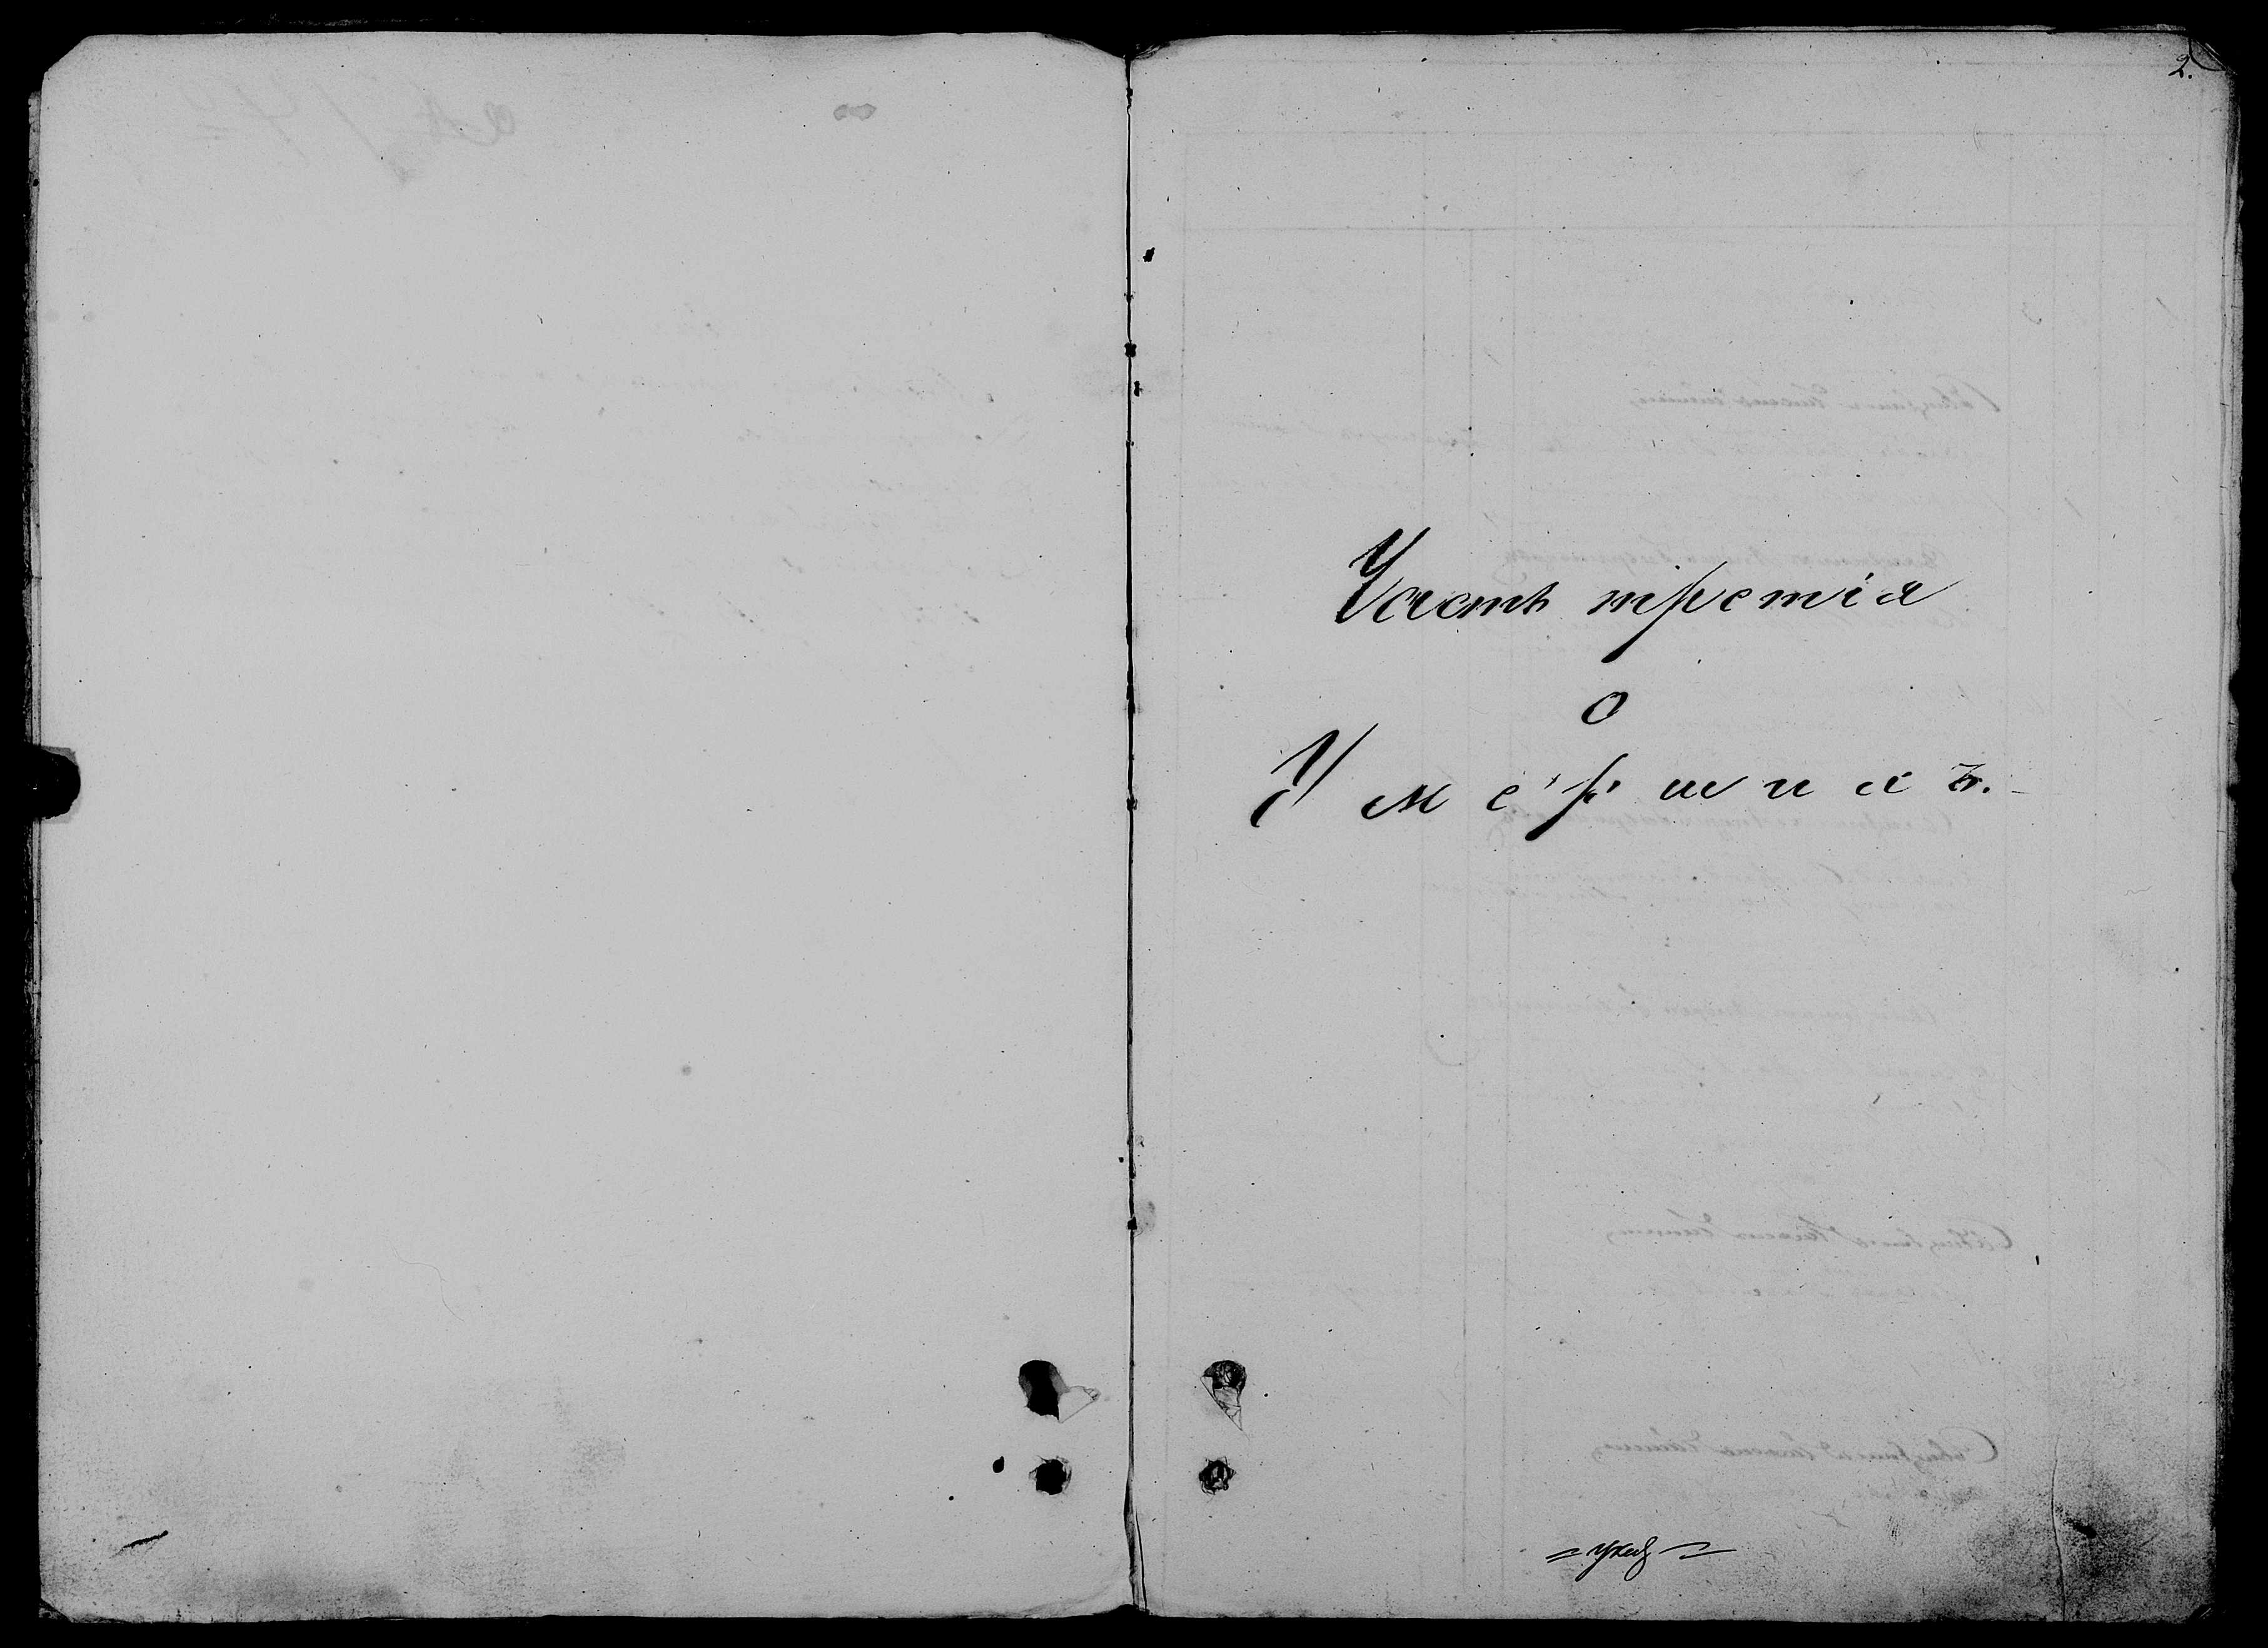 2.
Часть третія
о
Умершихъ.